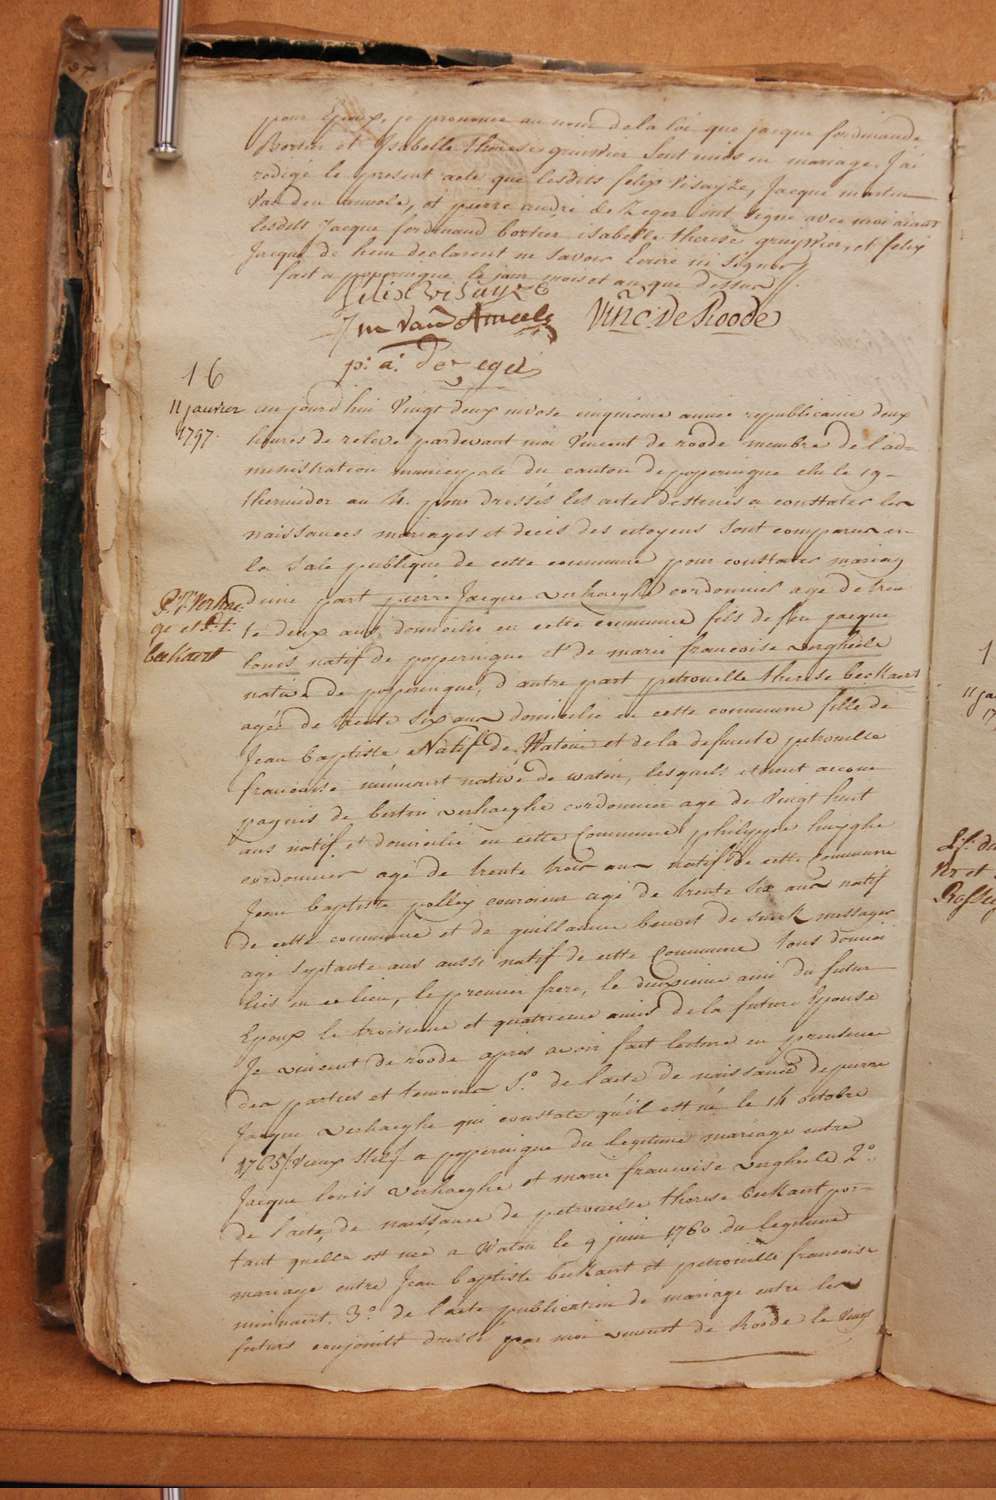 pour Epoux, je prononce au nom de la loi que jacque ferdinande
Bortier et Isabelle therese gruwier sont unis en mariage. J'ai
redigé le present acte que lesdits felix Visayze, Jacque martin
Van den ameele, et pierre andré de Zeger ont signé avec moi aiant
lesdits Jacque ferdinand bortier isabelle therese gruwier, et felix
Jacque de hem declarent ne savoir Ecrire ni signer
fait a poperingue le jour mois et an que dessus
felix visayze
J m Van Ameele Vinc De Roode
p: a: De
16
11 janvier
1797.
aujourd'hui Vingt deux nivose cinquieme année republicaine deux
heures de relevé pardevant moi Vincent de roode membre de l'ad=
ministration municipale du canton de poperingue elu le 19
thermidor an 4. pour dressés les actes destinés a constater les
naissances mariages et decès des citoyens sont comparus en
la sale publique de cette commune pour constater mariag
P. J. Verhae-
ge et P. t.
beckaert
d'une part pierre Jacque verhaeghe cordonnier age de tren
te deux ans domicilié en cette commune fils de feu jacque
louis natif de poperingue et de marie francoise vergheele
native de poperingue, d'autre part petronelle therese beckaert
agée de trente six ans domicilie en cette commune fille de
Jean baptiste Natif de Watou et de la defuncte petronille
francoise minnaert native de watou, lesquels etaient accom
pagnés de bertin verhaeghe cordonnier age de Vingt huit
ans natif et domicilié en cette Commune philippe huyghe
cordonnier agé de trente trois ans natif de cette commune
Jean baptiste polley couvreur agé de trente six ans natif
de cette commune et de guillaume benoit de smeek messager
agé septante ans aussi natif de cette Commune tous domici
liés en ce lieu, le premier frere, le deuxieme ami du futur
Epoux le troisieme et quatrieme amis de la future Epouse
Je vincent de roode apres avoir fait lecture en presence
des parties et temoins 1.º de l'acte de naissance de pierre
Jacque verhaeghe qui constate qu'il est né le 14 octobre
1765/Vieux Stile/ a poperingue du legitime mariage entre
Jacque louis verhaeghe et marie francoise vergheele 2º
de l'acte de naissance de petronelle therese beckaert por-
tant quelle est née a Watou le 9 juin 1760 du legitime
mariage entre Jean baptiste beckaert et petronille francoise
minnaert. 3.º de l'acte publication de mariage entre les
futurs conjoints dressé par moi vincent de Roode le vingt
1
11 ja
17